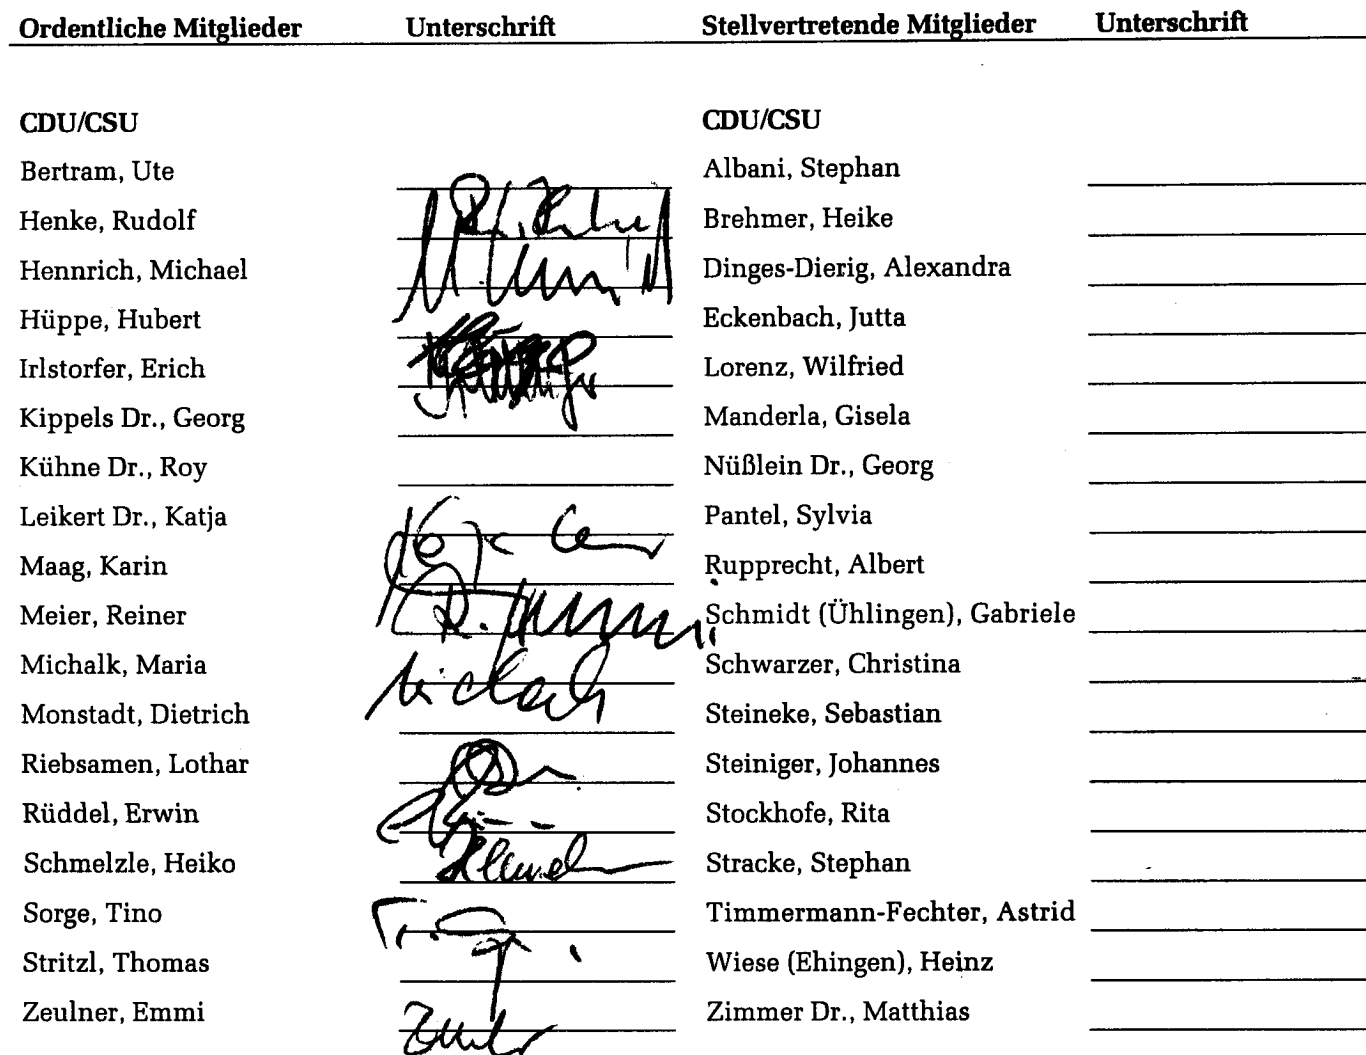 Ordentliche Mitglieder Unterschrift Stellvertretende Mitglieder Unterschrift
CDU/CSU CDU/CSU
Bertram, Ute Albani, Stephan
Henke, Rudolf Brehmer, Heike
Hennrich, Michael Dinges-Dierig, Alexandra
Hüppe, Hubert Eckenbach, Jutta
Irlstorfer, Erich Lorenz, Wilfried
Kippels Dr., Georg Manderla, Gisela
Kühne Dr., Roy Nüßlein Dr., Georg
Leikert Dr., Katja Pantel, Sylvia
Maag, Karin Rupprecht, Albert
Meier, Reiner Schmidt (Ühlingen), Gabriele
Michalk, Maria Michalk Schwarzer, Christina
Monstadt, Dietrich Steineke, Sebastian
Riebsamen, Lothar Steiniger, Johannes
Rüddel, Erwin Stockhofe, Rita
Schmelzle, Heiko Stracke, Stephan
Sorge, Tino Timmermann-Fechter, Astrid
Stritzl, Thomas Wiese (Ehingen), Heinz
Zeulner, Emmi Zimmer Dr., Matthias